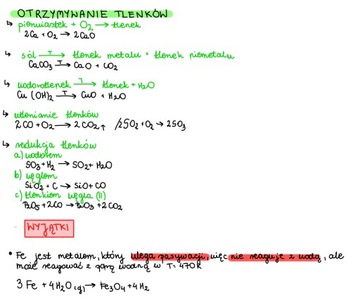 OTRZYMYWANIE TLENKÓW
↳ pierwiastek + O₂ → tlenek
2Ca + O₂ → 2CaO
↳ sól —T→ tlenek metalu + tlenek niemetalu
CaCO₃ —T→ CaO + CO₂
↳ wodorotlenek —T→ tlenek + H₂O
Cu(OH)₂ —T→ CuO + H₂O
↳ utlenianie tlenków
2CO + O₂ → 2CO₂, / 2SO₂ + O₂ → 2SO₃
↳ redukcja tlenków
a) wodorem
SO₃ + H₂ → SO₂ + H₂O
b) węglem
SiO₂ + C → SiO + CO
c) tlenkiem węgla (II)
+ 2CO → + 2CO₂
WYJĄTKI
• Fe jest metalem, który ulega pasywacji, więc nie reaguje z wodą, ale
może reagować z parą wodną w T: 470K
3 Fe + 4H₂O (g) → Fe₃O₄ + 4H₂